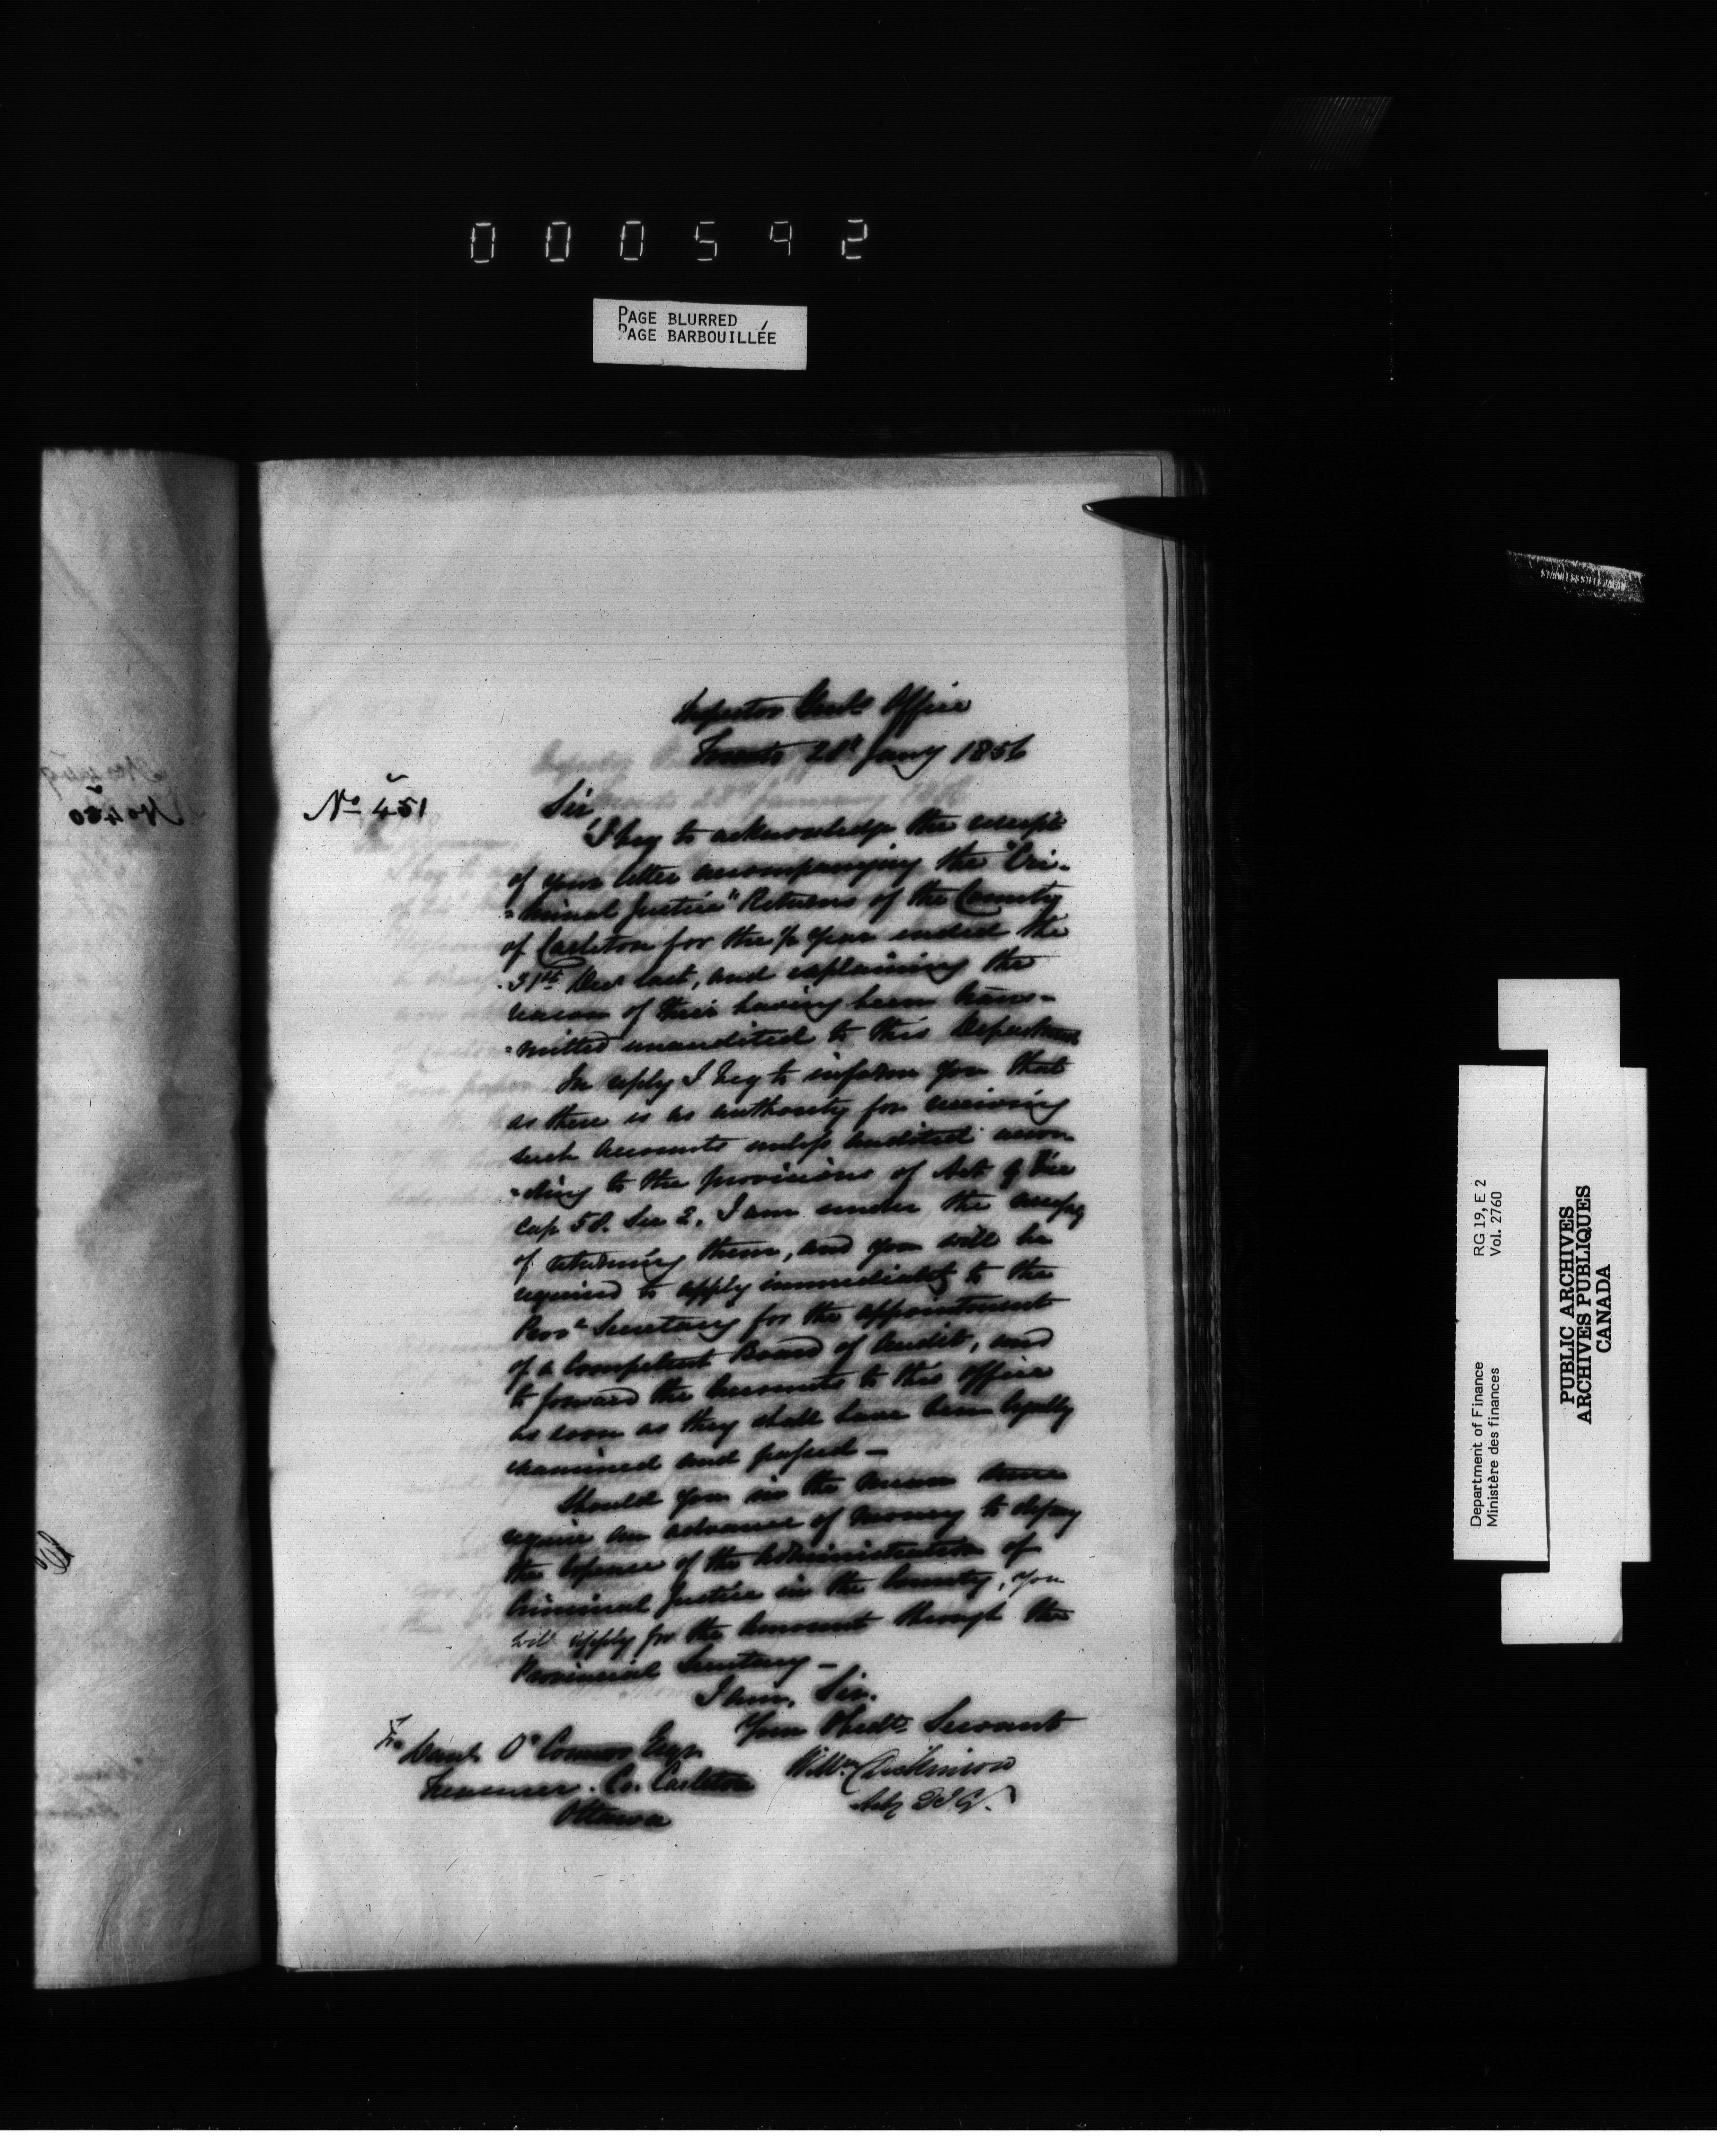 000592
PAGE BLURRED
PAGE BARBOUILLÉE
Inspector Genl's Office
Toronto 28th Jany 1856
No 451
Sir,
I beg to acknowledge the receipt
of your letter accompanying the "Cri-
-minal Justice" Returns of the County
of Carleton for the ½ Year ended the
31st Decr last, and explaining the
reason of their having been trans-
-mitted unaudited to this Department
In reply I beg to inform you that
as there is no authority for receiving
such accounts unless audited accor-
-ding to the provisions of Act 9 Vic
Cap 58. Sec 2, I am under the necessy
of returning them, and you will be
required to apply immediately to the
Provl Secretary for the appointment
of a Competent Board of Audit, and
to forward the Accounts to this Office
as soon as they shall have been legally
examined and passed —
Should you in the mean time
require an advance of money to defray
the Expense of the Administration of
Criminal Justice in the County, you
will apply for the Amount through the
Provincial Secretary —
I am, Sir.
Your Obedt Servant
Wm Dickinson
Actg D I G.
To Danl O'Connor Esqr.
Treasurer. Co. Carleton
Ottawa
No 450
Department of Finance RG 19, E 2
Ministère des finances Vol. 2760
PUBLIC ARCHIVES
ARCHIVES PUBLIQUES
CANADA